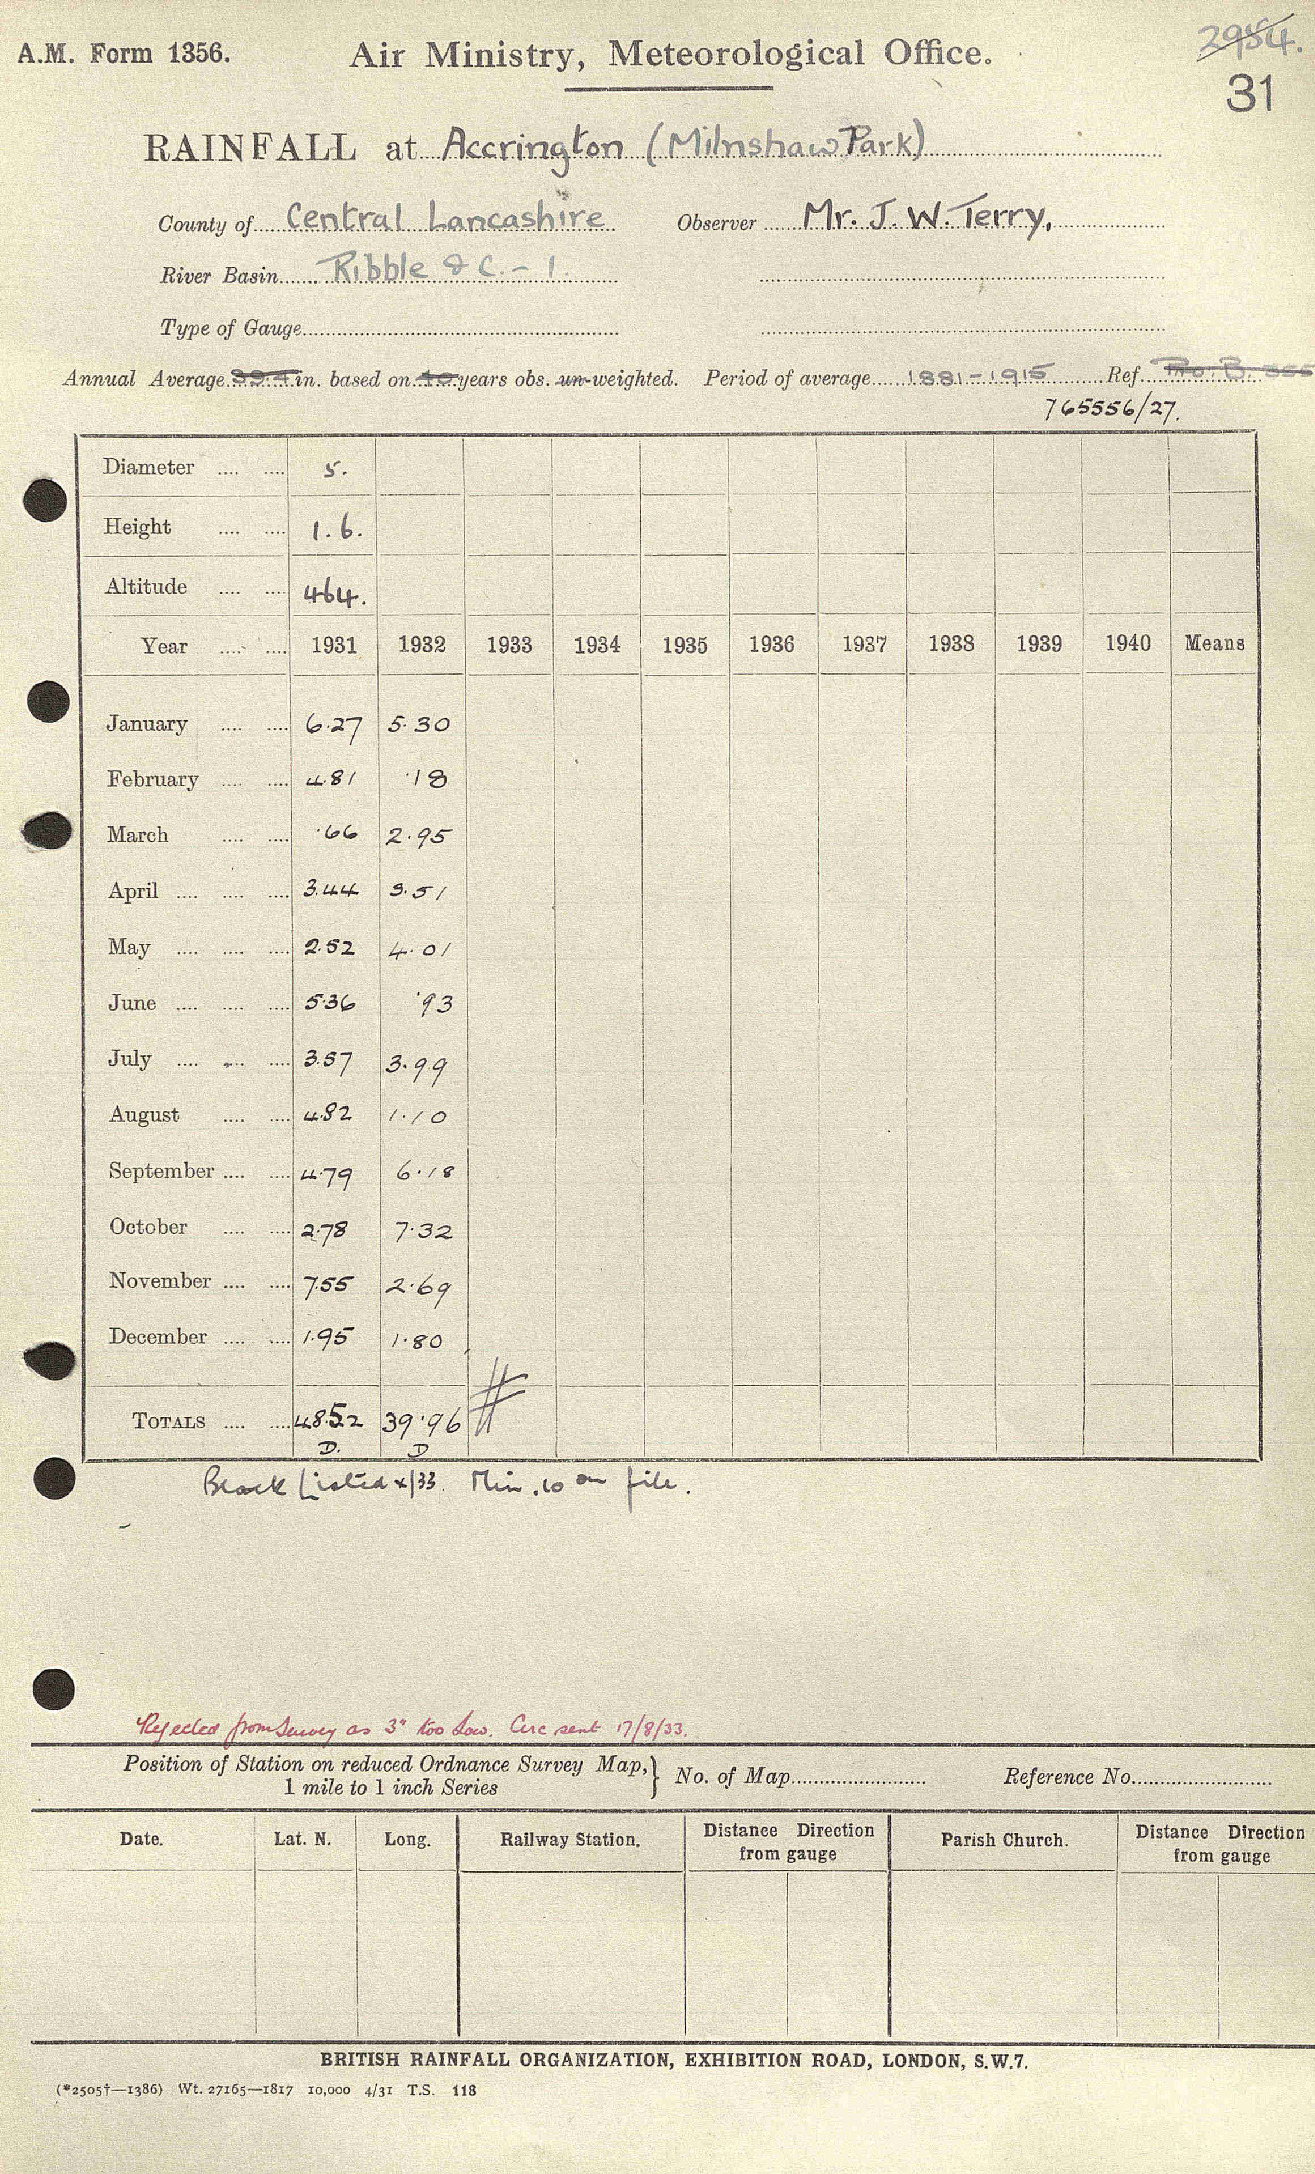 A.M. Form 1356. Air Ministry, Meteorological Office. 2984.
31
RAINFALL at Accrington (Milnshaw Park)
County of Central Lancashire Observer Mr. J. W. Terry,
River Basin Ribble &c. - 1.
Type of Gauge
Annual Average in. based on years obs. un-weighted. Period of average 1881-1915 Ref.
765556/27.
Diameter 5.
Height 1.6.
Altitude 464.
Year 1931 1932 1933 1934 1935 1936 1937 1938 1939 1940 Means
January 6.27 5.30
February 4.81 .18
March .66 2.95
April 3.44 3.51
May 2.52 4.01
June 5.36 .93
July 3.57 3.99
August 4.82 1.10
September 4.79 6.18
October 2.78 7.32
November 7.55 2.69
December 1.95 1.80
TOTALS 48.52 39.96
D. D
Black Listed x/33. Min. 10 on file.
Rejected from Survey as 3" too low. Circ sent 17/8/33.
Position of Station on reduced Ordnance Survey Map, } No. of Map Reference No.
1 mile to 1 inch Series
Date. Lat. N. Long. Railway Station. Distance Direction from gauge Parish Church. Distance Direction from gauge
BRITISH RAINFALL ORGANIZATION, EXHIBITION ROAD, LONDON, S.W.7.
(*2505†—1386) Wt. 27165—1817 10,000 4/31 T.S. 118